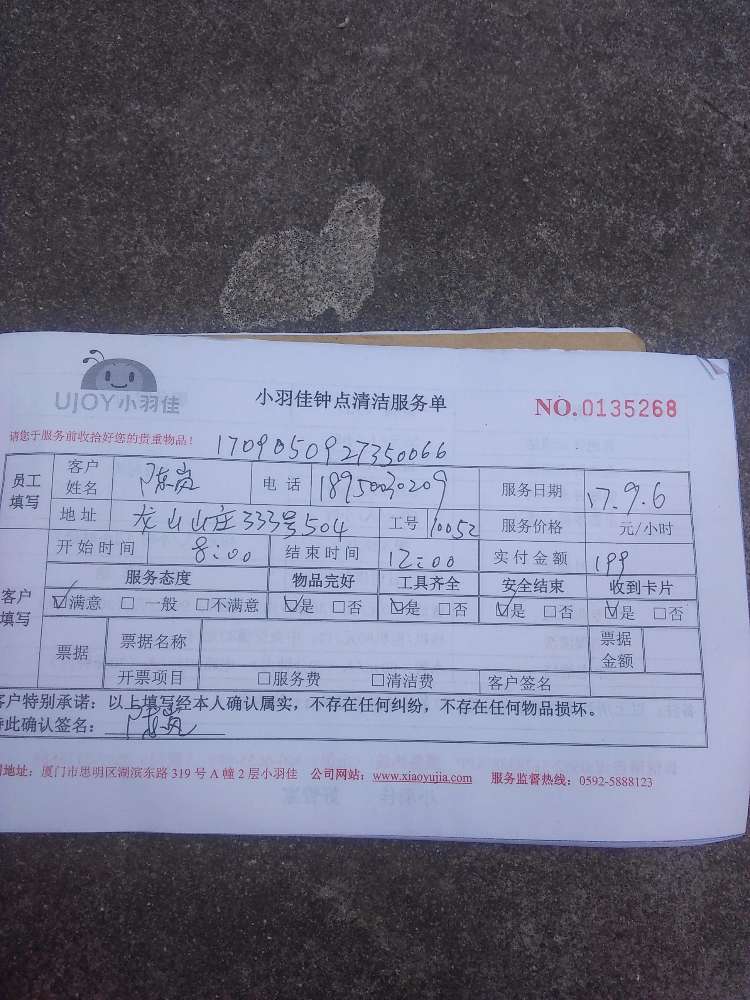 UJOY小羽佳
小羽佳钟点清洁服务单
NO.0135268
请您于服务前收拾好您的贵重物品!
1709050927350066
员工填写 客户姓名 陈岚 电话 18950030209 服务日期 17.9.6
地址 龙山山庄333号504 工号 10052 服务价格 元/小时
开始时间 8:00 结束时间 12:00 实付金额 199
客户填写 服务态度 物品完好 工具齐全 安全结束 收到卡片
☑满意 □ 一般 □不满意 ☑是 □否 ☑是 □否 ☑是 □否 ☑是 □否
票据 票据名称 票据金额
开票项目 □服务费 □清洁费 客户签名
客户特别承诺:以上填写经本人确认属实,不存在任何纠纷,不存在任何物品损坏。
特此确认签名: 陈岚
地址:厦门市思明区湖滨东路 319 号 A 幢 2 层小羽佳 公司网站:www.xiaoyujia.com 服务监督热线:0592-5888123